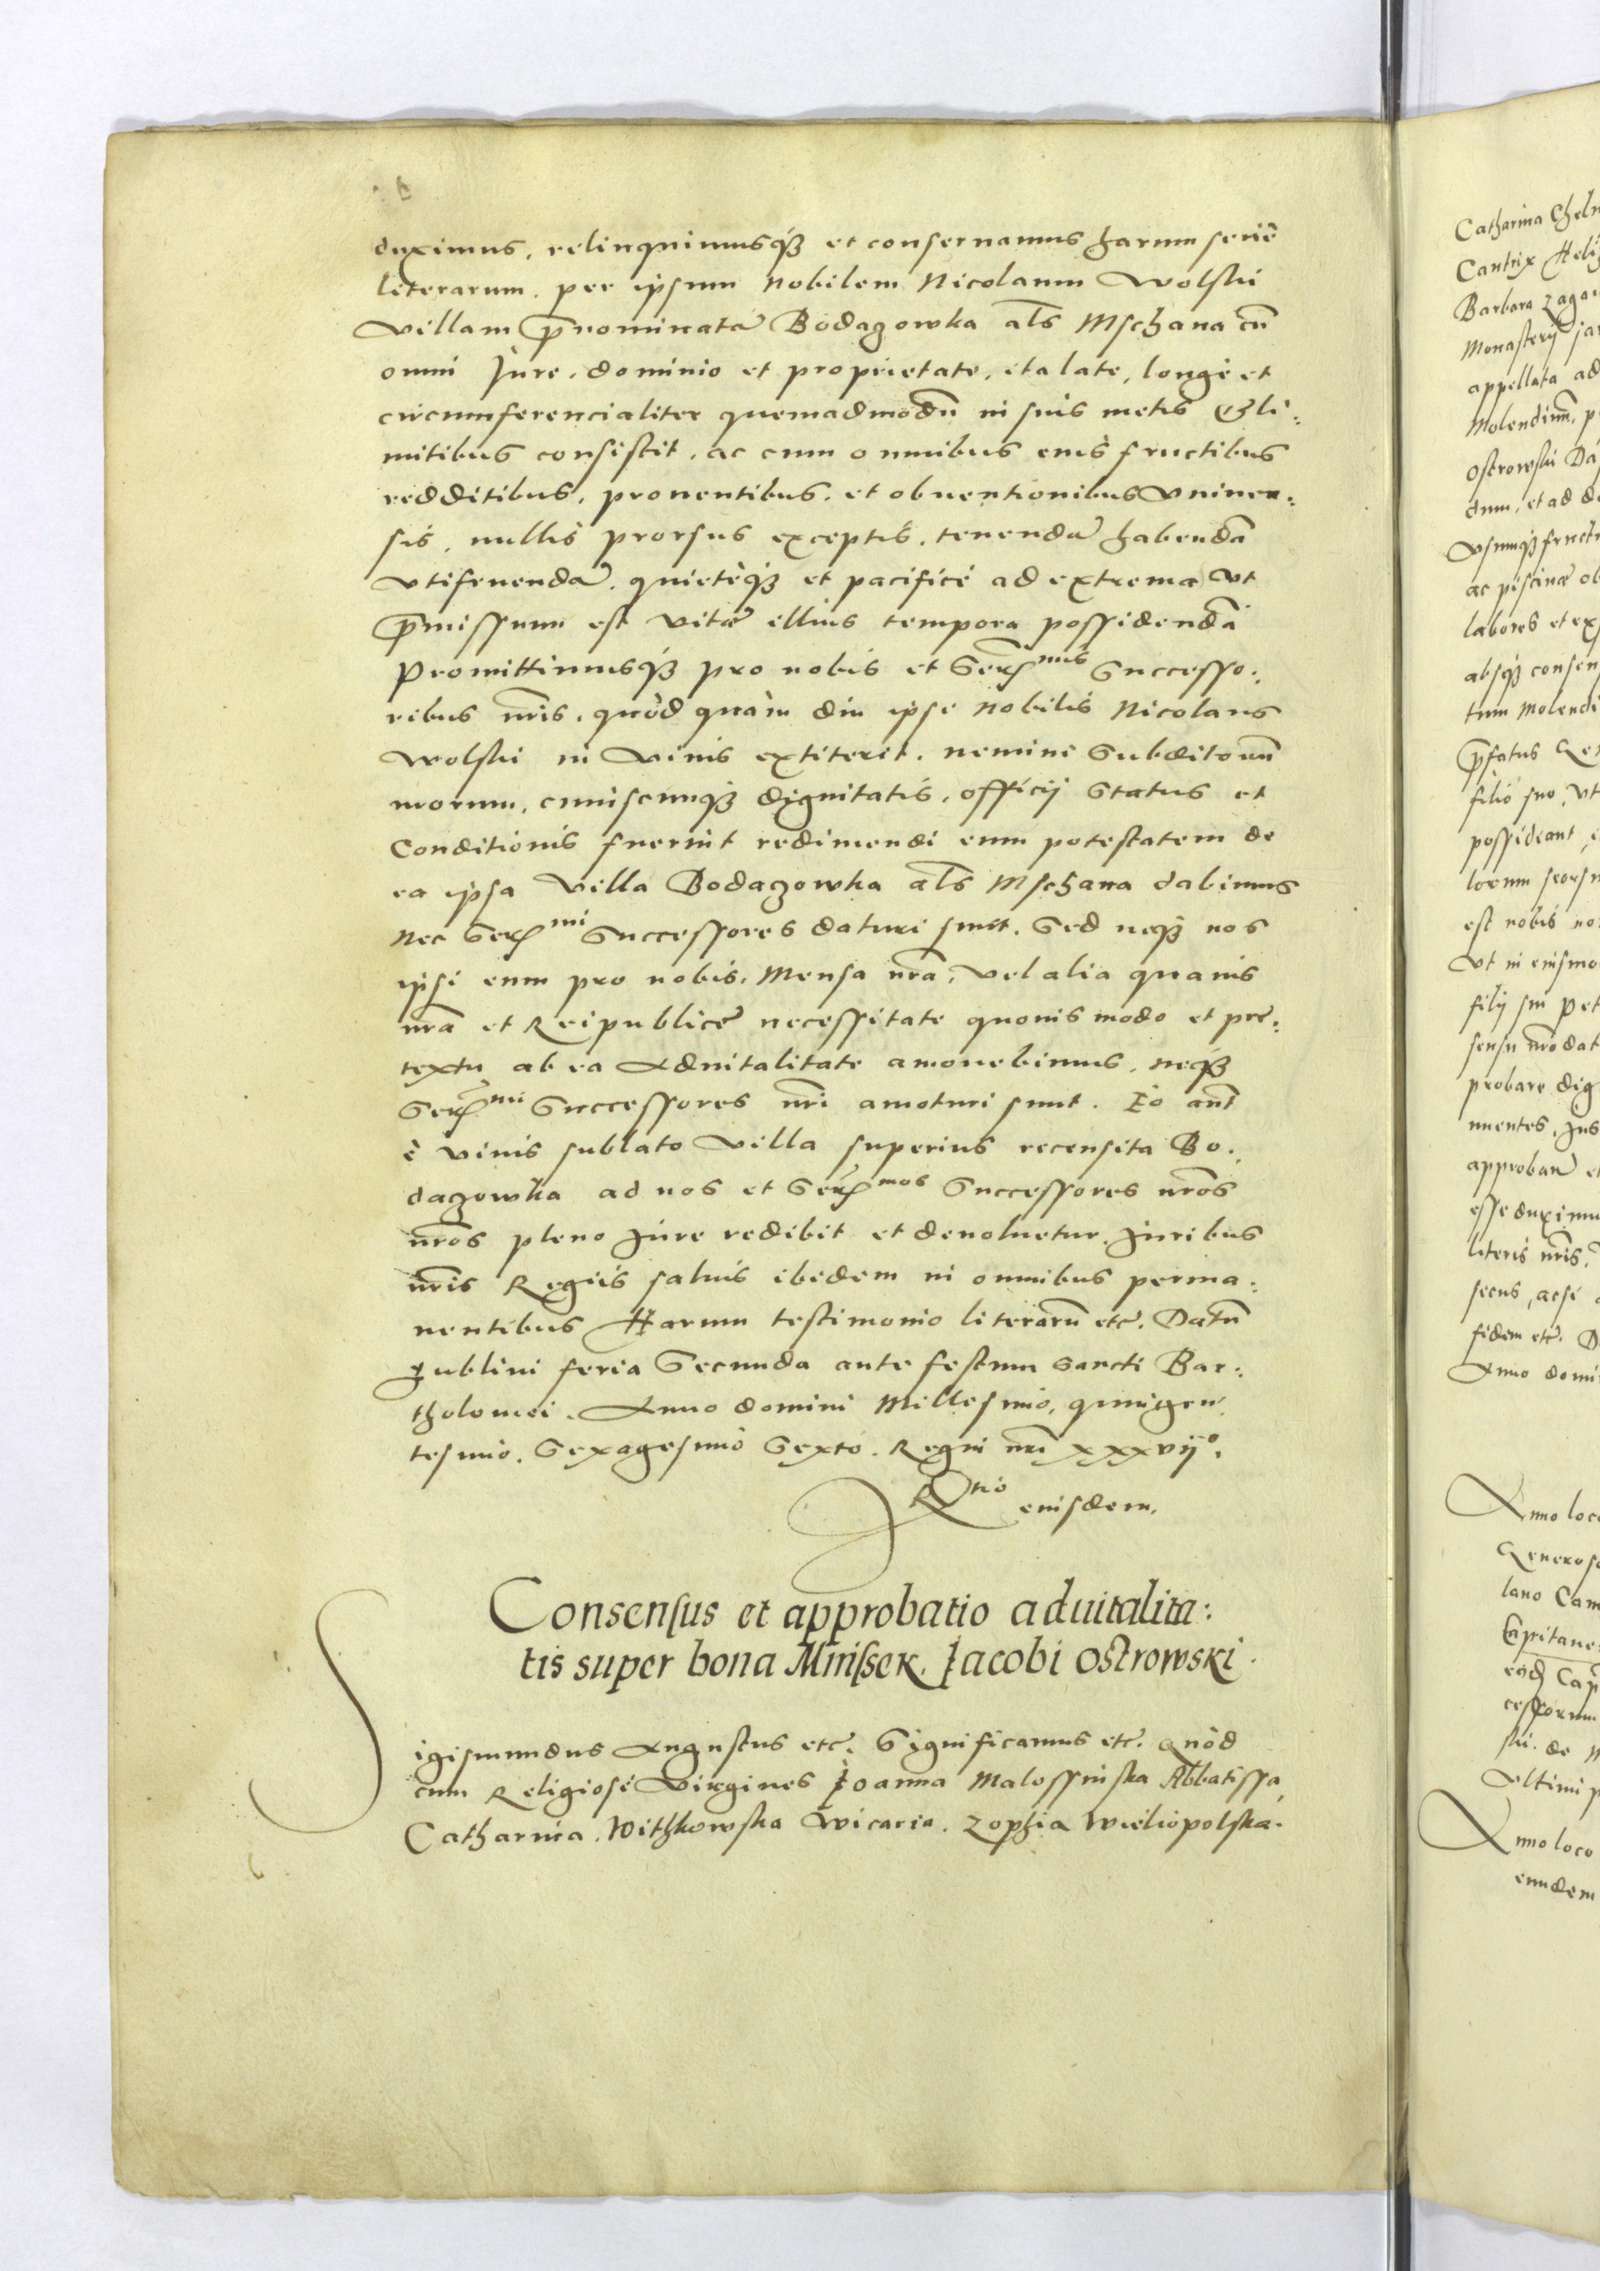 duximus, relinquimusq₃ et conseruamus harum serie
literarum. per ipsum Nobilem Nicolaum Wolski
villam p̄nominatā Bodazowka als Mschana cū
omni Jure, dominio et proprietate, ita late, longè et
circumferencialiter quemadmodū in suis metis & li:
mitibus consistit, ac cum omnibus eius fructibus
redditibus, prouentibus, et obuentionibus vniuer:
sis, nullis prorsus exceptis, tenendā habendā
vtifruendā, quietèq₃ et pacificè ad extrema vt
p̄missum est vitæ illius tempora possidendā
Promittimusq₃ pro nobis et Serꝭmis Successo:
ribus nr̄is, quòd quàm diu ipse Nobilis Nicolaus
Wolski in viuis extiterit, nemini Subditorū
nrorum, cuiuscunq₃ dignitatis, officij Status et
Conditionis fuerint redimendi eum potestatem de
ea ipsa Villa Bodazowka als Mschana dabimus
Nec Serꝭmi Successores daturi sunt. Sed neq₃ nos
ipsi eum pro nobis, Mensa nr̄a, vel alia quauis
nr̄a et Reipublicæ necessitate quouis modo et præ:
textu ab ea Aduitalitate amouebimus, neq₃
Serꝭmi Successores nr̄i amoturi sunt. Eo aūt
è viuis sublato Villa superius recensita Bo:
dazowka ad nos et Serꝭmos Successores nr̄os
nr̄os pleno Jure redibit et deuoluetur. Juribus
nr̄is Regiis saluis ibidem in omnibus perma:
nentibus Harum testimonio literarū etc. Datū
Lublini feria Secunda ante festum Sancti Bar:
tholomei. Anno domini Millesimo, quingen
tesimo, Sexagesimo Sexto. Regni nr̄i xxxvijᵒ.
Rᵗⁱᵒ eiusdem.
Consensus et approbatio aduitalita:
tis super bona Mnissek. Jacobi Ostrowski.
Sigismundus Augustus etc. Significamus etc. Quòd
cum Religiosæ Virgines Joanna Malossinska Abbatissa,
Catharina Withkowska Wicaria. Zophia Wieliopolska.
Catharina
Cantrix
Barbara
Monasterij
appellata ad
Molendinū,
Ostrowski
dum, et ad
vsumq₃
ac piscinæ
labores et
absq₃
tum
p̄fatus
filio suo, vt
possideant,
lorum
est nobis
Vt in
filij sui
sensu nr̄o
probare
approbanḏ
esse duximus
literis nr̄is,
secus, acsi
fidem etc.
Anno
Anno
Generos
lano
Capitane
de
vltimi
Anno loco
eundem